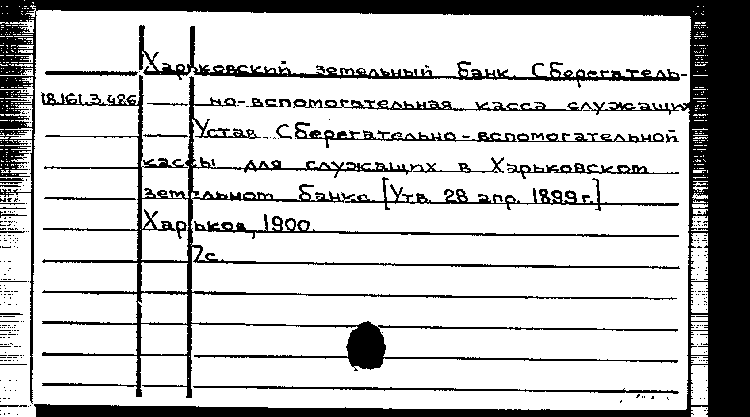 Харьковский земельный банк. Сберегатель-
18.161.3.486 но-вспомогательная касса служащих
Устав Сберегательно-вспомогательной
кассы для служащих в Харьковском
земельном банке. [Утв. 28 апр. 1899 г.]
Харьков, 1900.
7с.